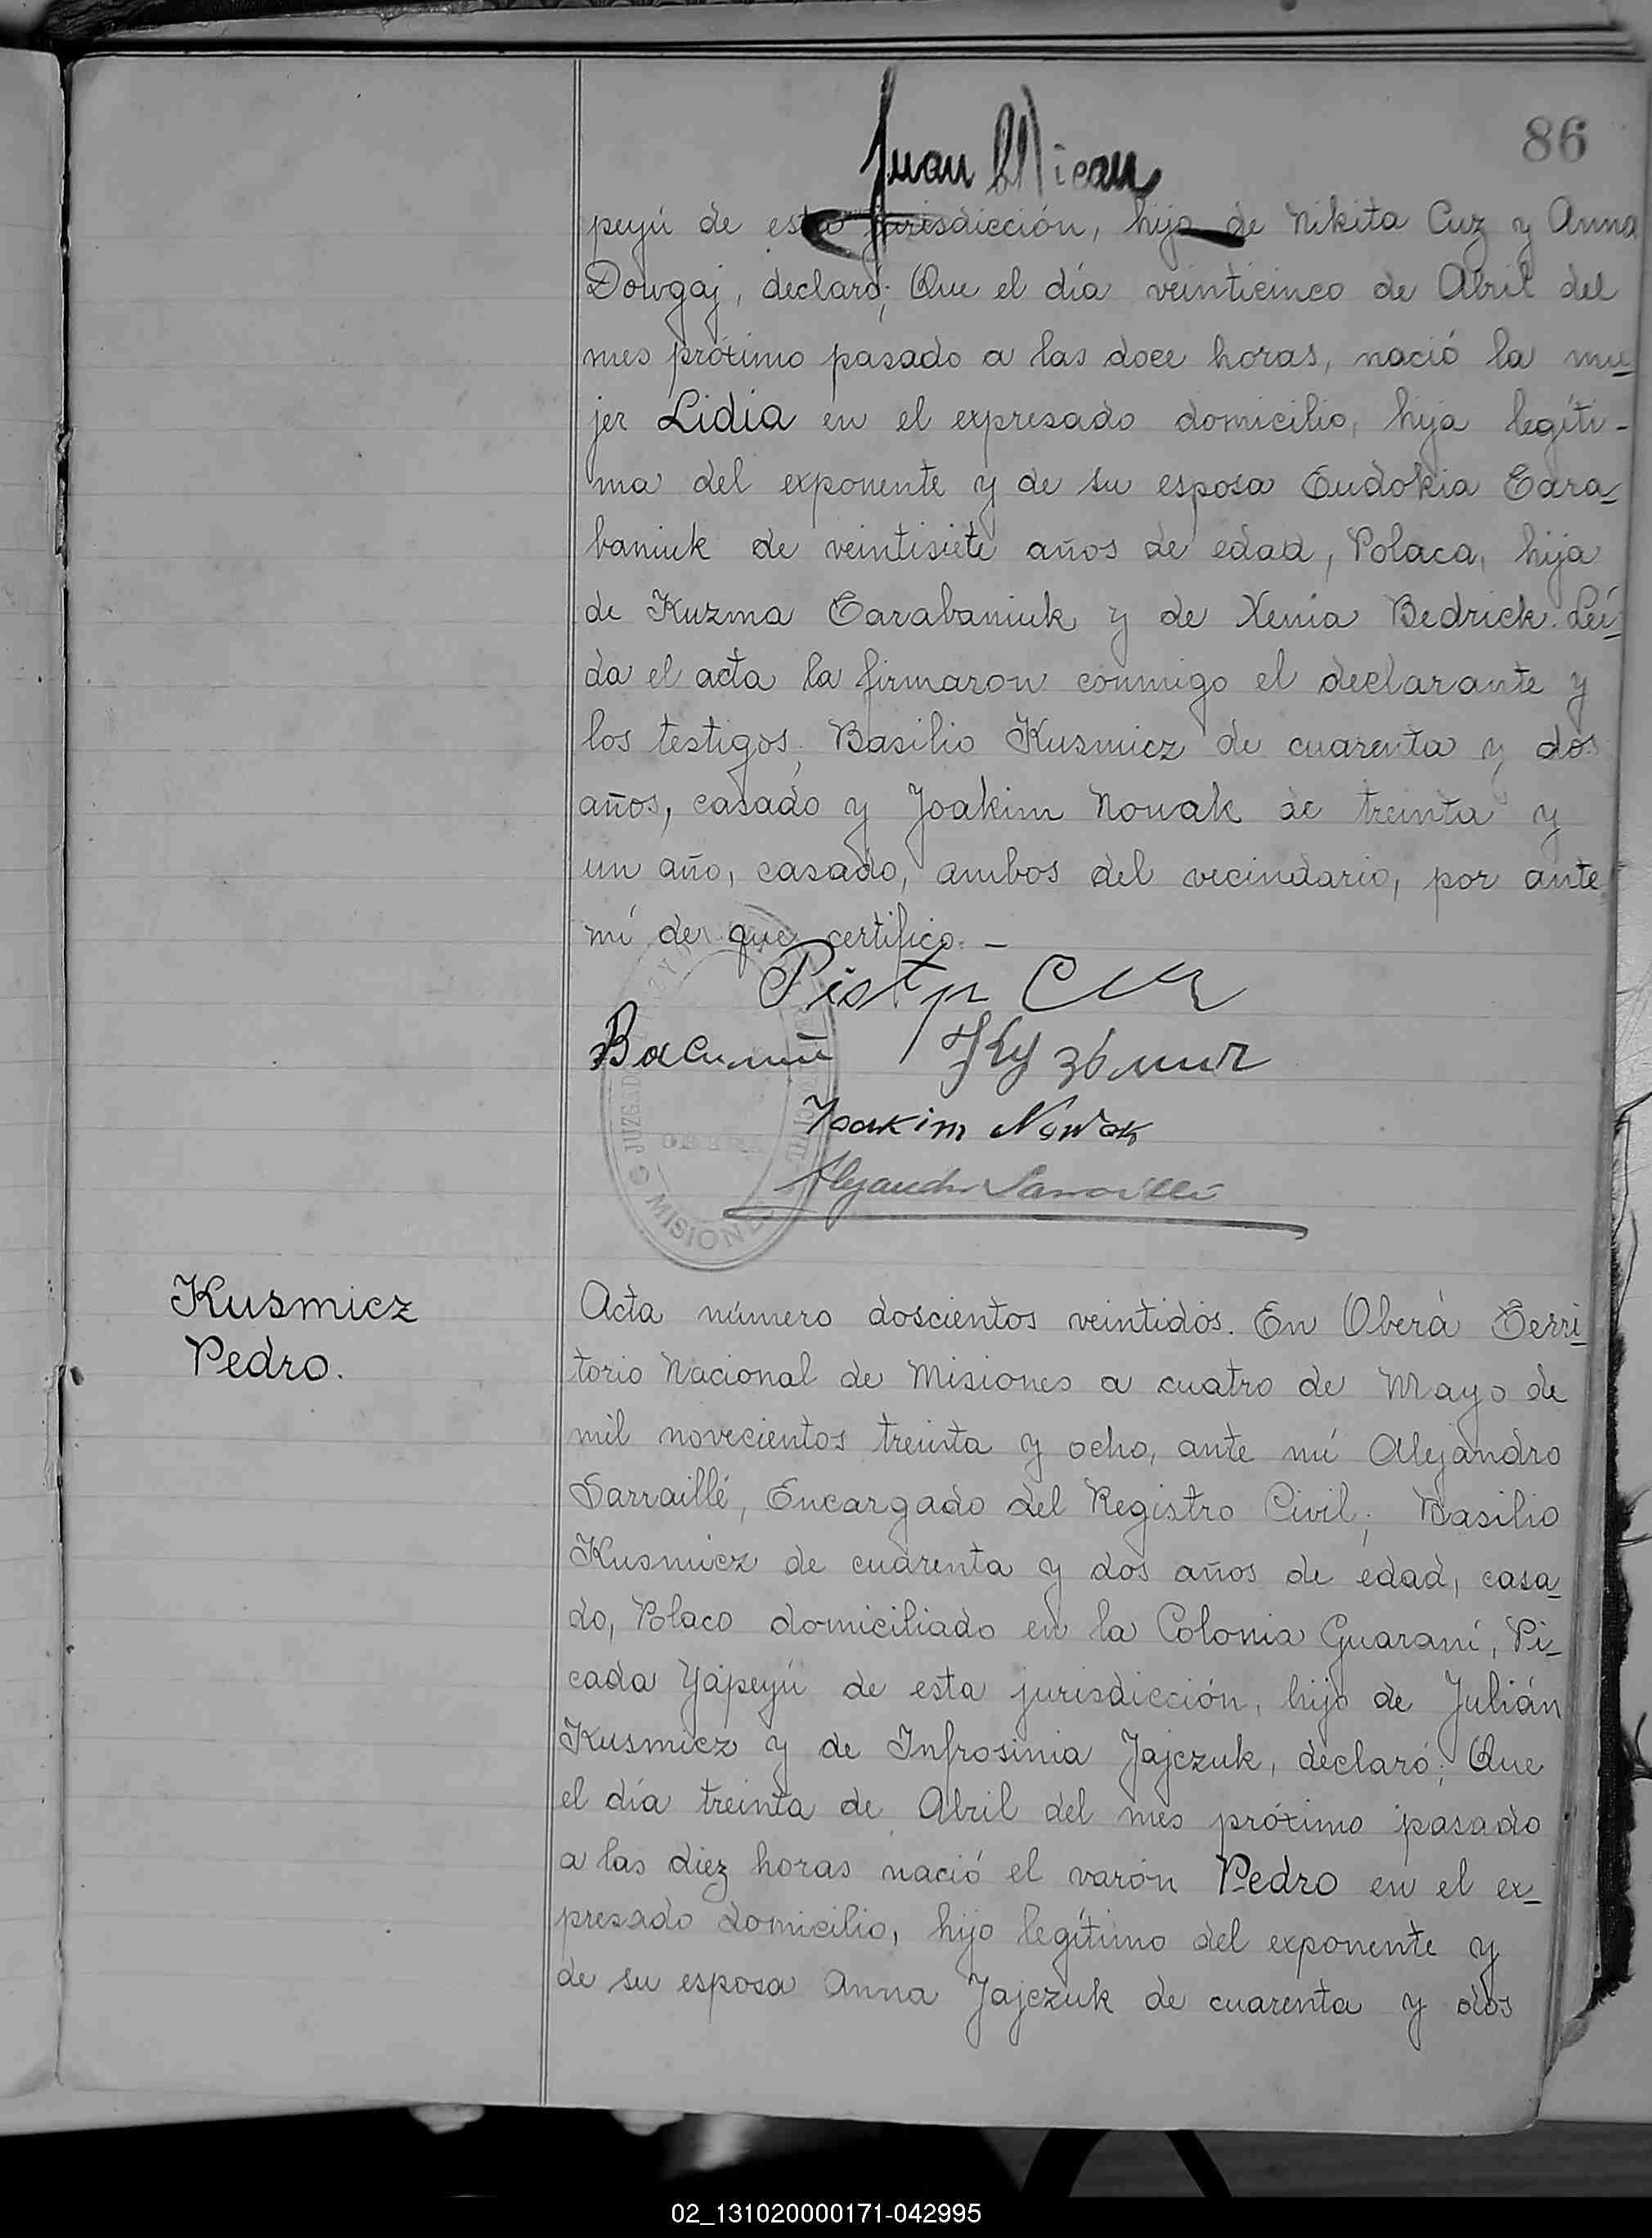 86
Juan
peyú de esta jurisdicción, hijo de Nikita Cuz y Anna
Dowgaj, declaró; Que el día veinticinco de Abril del
mes próximo pasado a las doce horas, nació la mu-
jer Lidia en el expresado domicilio, hija legíti-
ma del exponente y de su esposa Eudokia Tara-
baniuk de veintisiete años de edad, Polaca, hija
de Kuzma Tarabaniuk y de Xenia Bedrick. Leí-
da el acta la firmaron conmigo el declarante y
los testigos; Basilio Kusmicz de cuarenta y dos
años, casado y Joakim Nowak de treinta y
un año, casado, ambos del vecindario, por ante
mí de que certifico. —
Piotr Cuz
Василий Кузьмич
Joakim Nowak
Alejandro Sarraillé
JUZGADO
MISIONES
Kusmicz
Pedro.
Acta número doscientos veintidós. En Oberá Terri-
torio Nacional de Misiones a cuatro de Mayo de
mil novecientos treinta y ocho, ante mí Alejandro
Sarraillé, Encargado del Registro Civil; Basilio
Kusmicz de cuarenta y dos años de edad, casa-
do, Polaco domiciliado en la Colonia Guaraní, Pi-
cada Yapeyú de esta jurisdicción, hijo de Julián
Kusmicz y de Infrosinia Jajczuk, declaró; Que
el día treinta de Abril del mes próximo pasado
a las diez horas nació el varón Pedro en el ex-
presado domicilio, hijo legítimo del exponente y
de su esposa Anna Jajczuk de cuarenta y dos
02_131020000171-042995